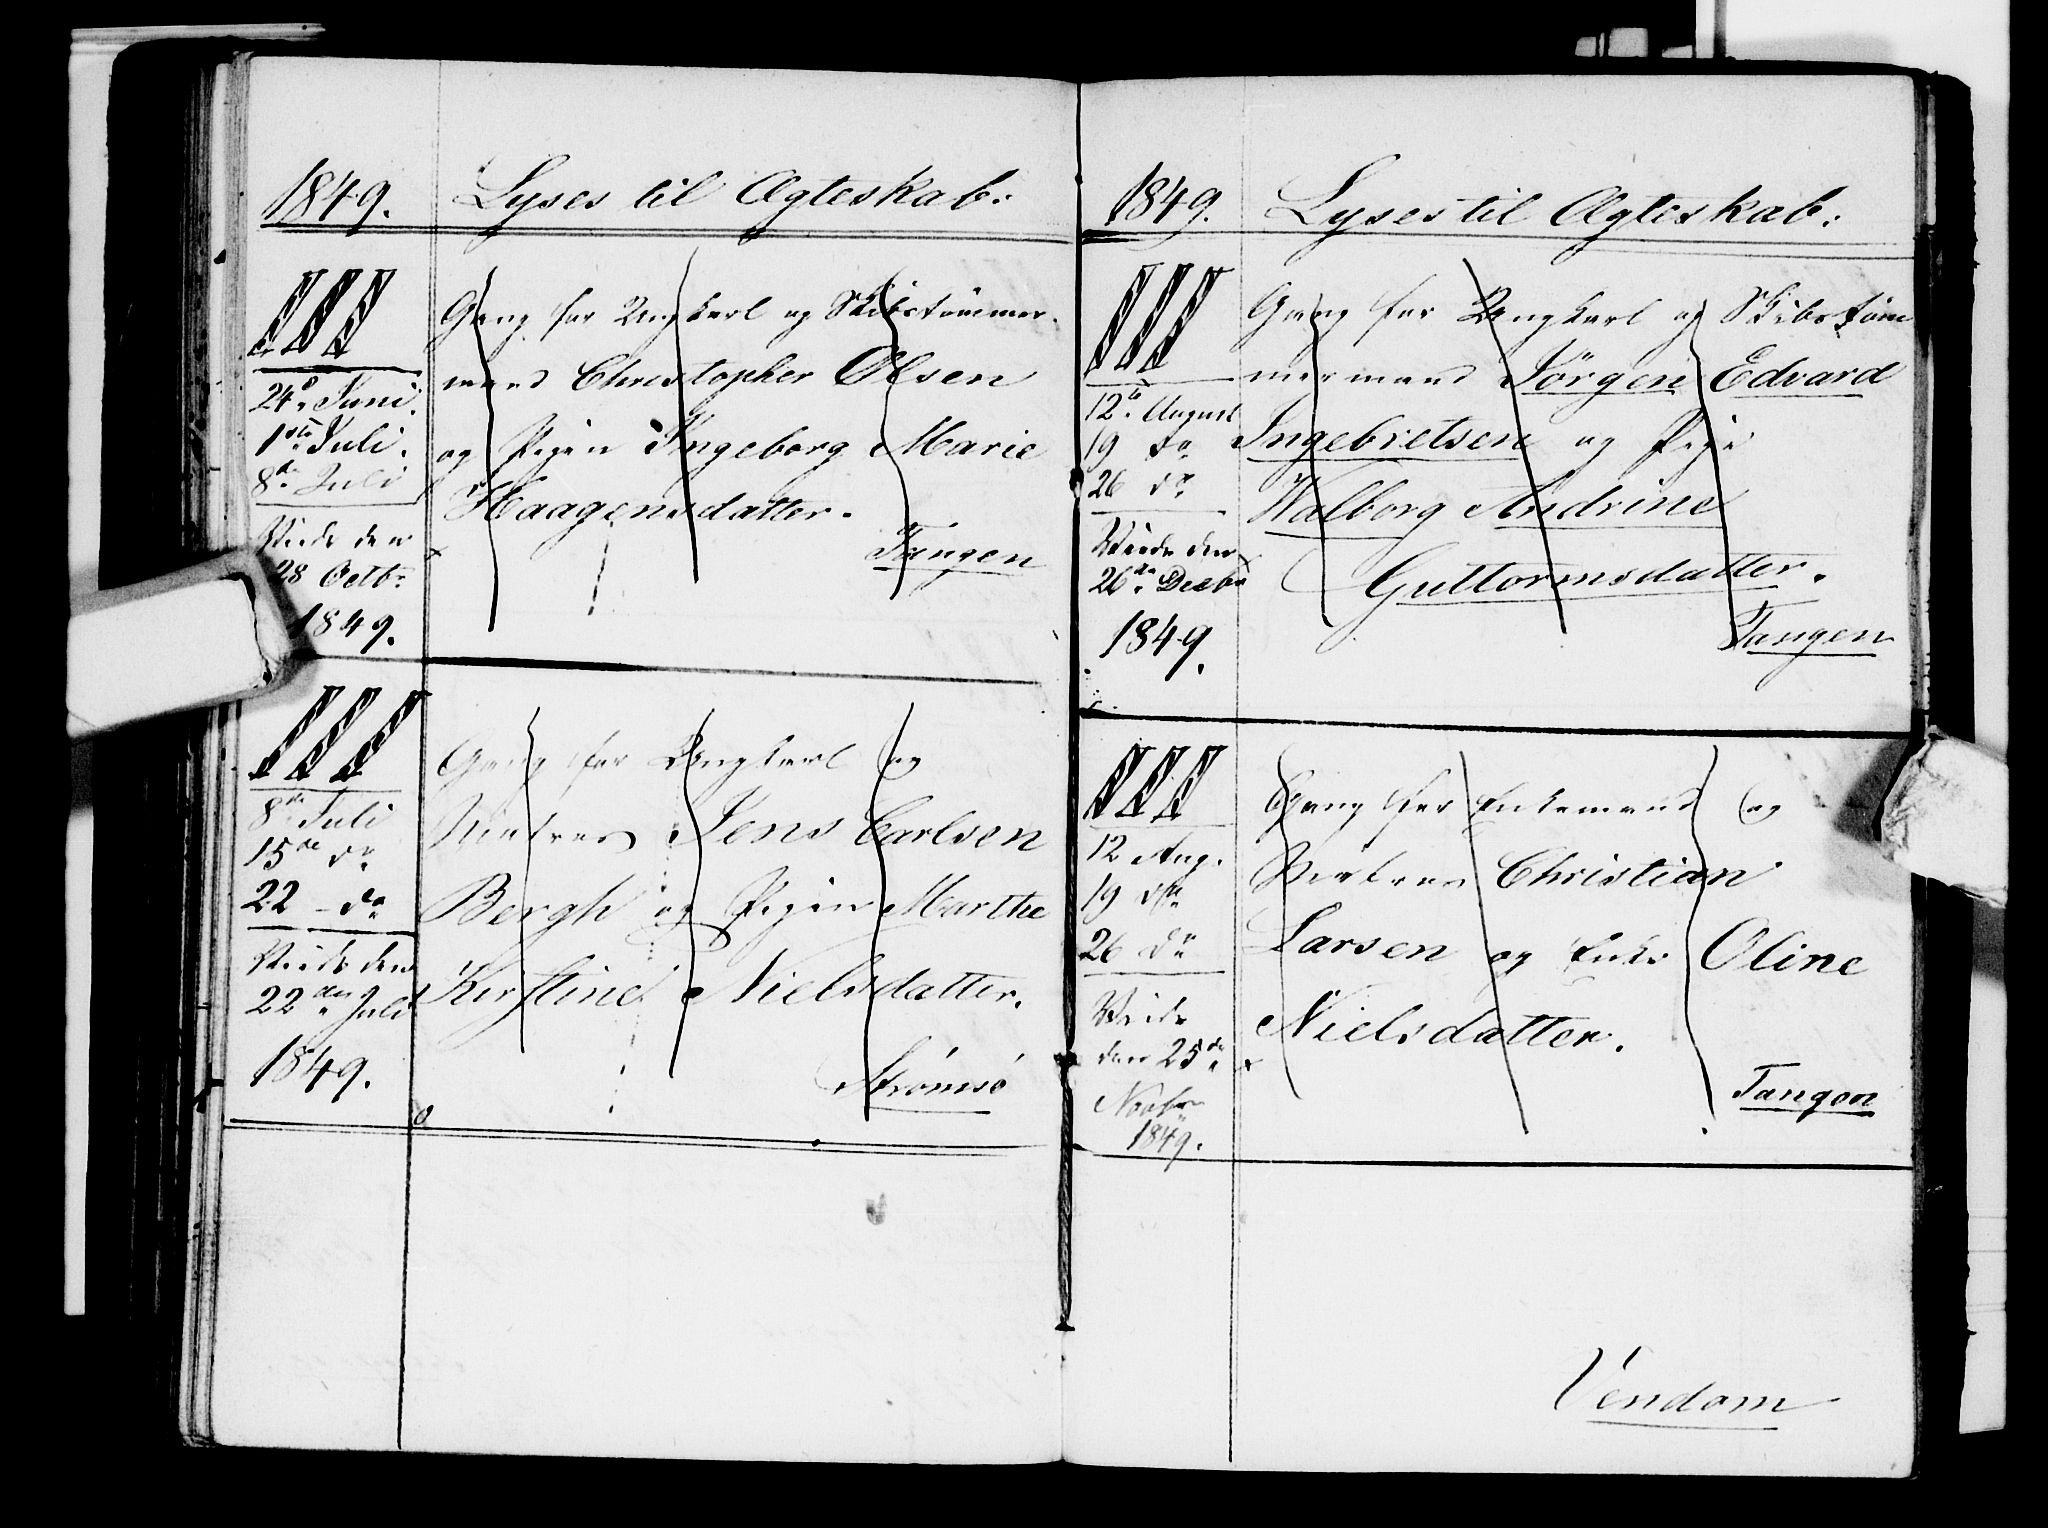 1849. Lyses til Ægteskab:
III
24de Juni.
1ste Juli.
8de Juli
Viede den
28 Octbr
1849.
Gang for Ungkarl og Skibstömmer-
mand Christopher Olsen
og Pigen Ingeborg Marie
Haagensdatter.
Tangen
III
8de Juli
15de do
22 - do
Viede den
22den Juli
1849.
Gang for Ungkarl og
Matros Jens Carlsen
Bergh og Pigen Marthe
Kirstine Nielsdatter.
Strömsö
1849. Lyses til Ægteskab:
III
12te August
19 do
26 do
Viede den
26de Decbr
1849.
Gang for Ungkarl og Skibstöm
mermand Jörgen Edvard
Ingebretsen og Pige
Walborg Andrine
Guttormsdatter.
Tangen
III
12 Aug.
19 do
26 do
Viede
den 25de
Novbr
1849.
Gang for Enkemand og
Matros Christian
Larsen og Enke Oline
Nielsdatter.
Tangen
Vendom